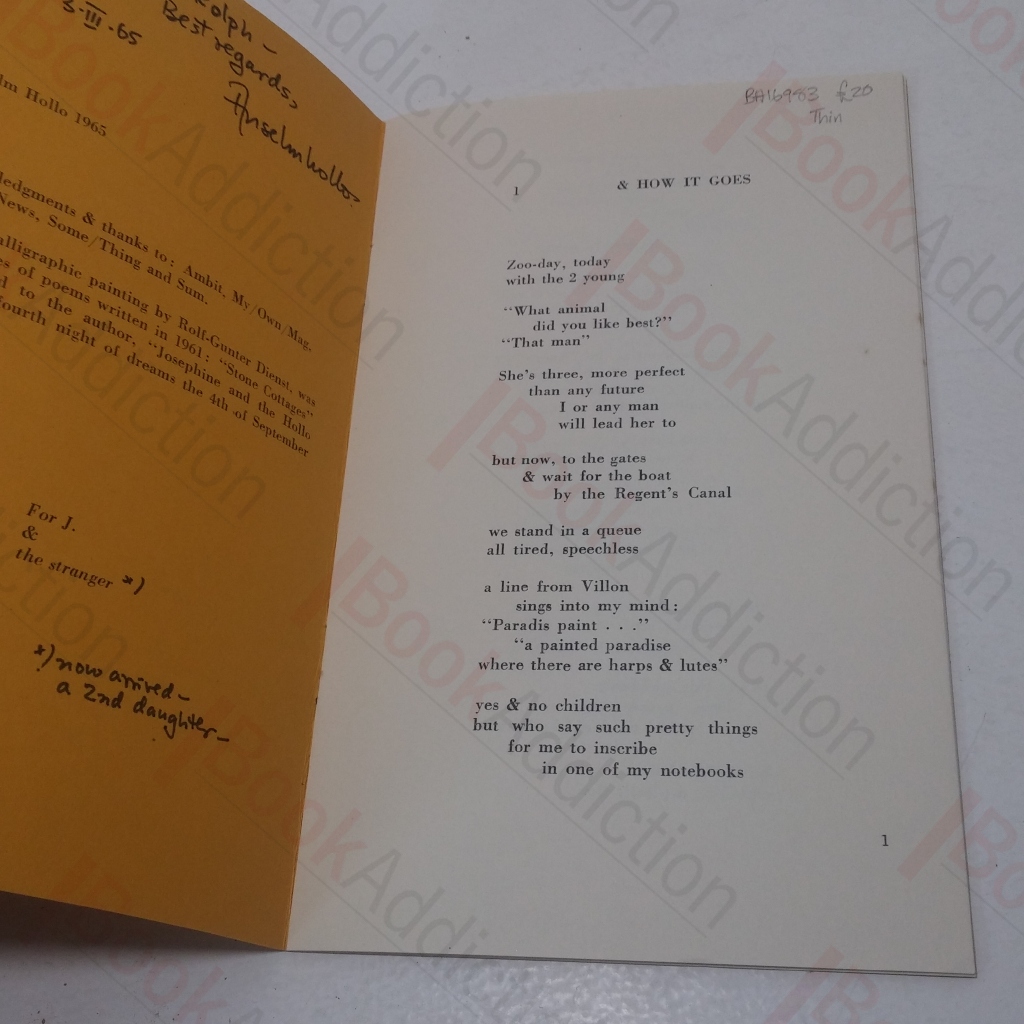 3·III·65
Best regards,
Anselm Hollo.
Hollo 1965
& thanks to: Ambit, My/Own/Mag,
News, Some/Thing and Sum.
calligraphic painting by Rolf-Gunter Dienst, was
of poems written in 1961: "Stone Cottages"
to the author, "Josephine and the Hollo
fourth night of dreams the 4th of September
For J.
&
the stranger *)
*) now arrived –
a 2nd daughter –
BA16983 £20
Thin
1 & HOW IT GOES
Zoo-day, today
with the 2 young
"What animal
did you like best?"
"That man"
She's three, more perfect
than any future
I or any man
will lead her to
but now, to the gates
& wait for the boat
by the Regent's Canal
we stand in a queue
all tired, speechless
a line from Villon
sings into my mind:
"Paradis paint . . ."
"a painted paradise
where there are harps & lutes"
yes & no children
but who say such pretty things
for me to inscribe
in one of my notebooks
1
BookAddiction